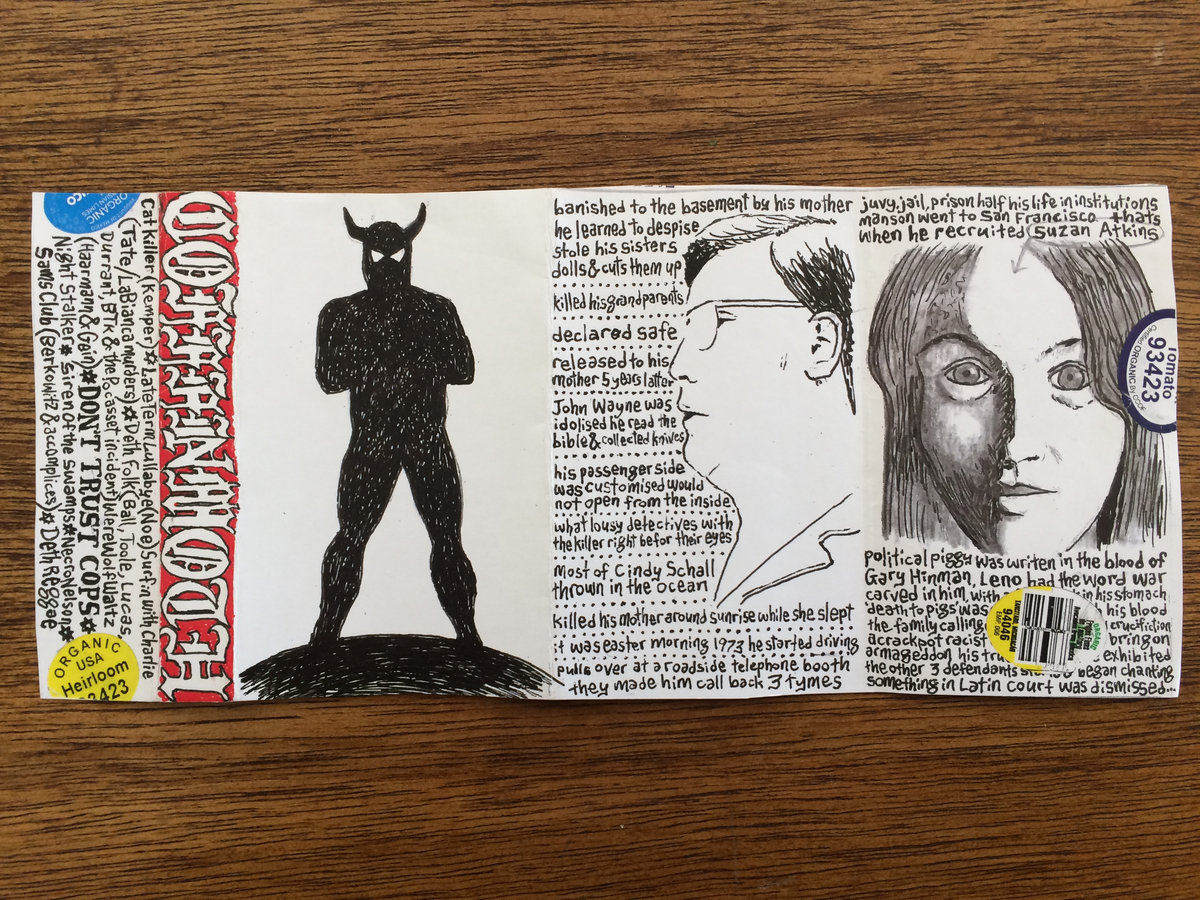 ORGANIC
Cat Killer (Kemper) * Late Term Lullabye (Noe) Surfin with Charlie
(Tate/LaBianca murders) * Deth Folk (Ball, Toole, Lucas
Durrant, BTK & the Pocasset incident) WereWolf Waltz
(Haarmann & Gein) * DON'T TRUST COPS *
Night Stalker * Siren of the Swamps * NecroNelson *
Sams Club (Berkowitz & accomplices) * Deth Reggae
ORGANIC
USA
Heirloom
3423
banished to the basement by his mother
he learned to despise
stole his sisters
dolls & cuts them up
killed his grandparents
declared safe
released to his
mother 5 years latter
John Wayne was
idolised he read the
bible & collected knives
his passenger side
was customised would
not open from the inside
what lousy detectives with
the killer right befor their eyes
most of Cindy Schall
thrown in the ocean
killed his mother around sunrise while she slept
it was easter morning 1973 he started driving
pulls over at a roadside telephone booth
they made him call back 3 tymes
juvy, jail, prison half his life in institutions
manson went to San Francisco thats
when he recruited Suzan Atkins
Tomato
93423
Certified ORGANIC by CCOF
political piggy was writen in the blood of
Gary Hinman, Leno had the word war
carved in him, with in his stomach
death to pigs was his blood
the family calling crucifiction
a crackpot racist bring on
armageddon, his exhibited
the other 3 defendants began chanting
something in Latin court was dismissed...
94046
ORGANIC